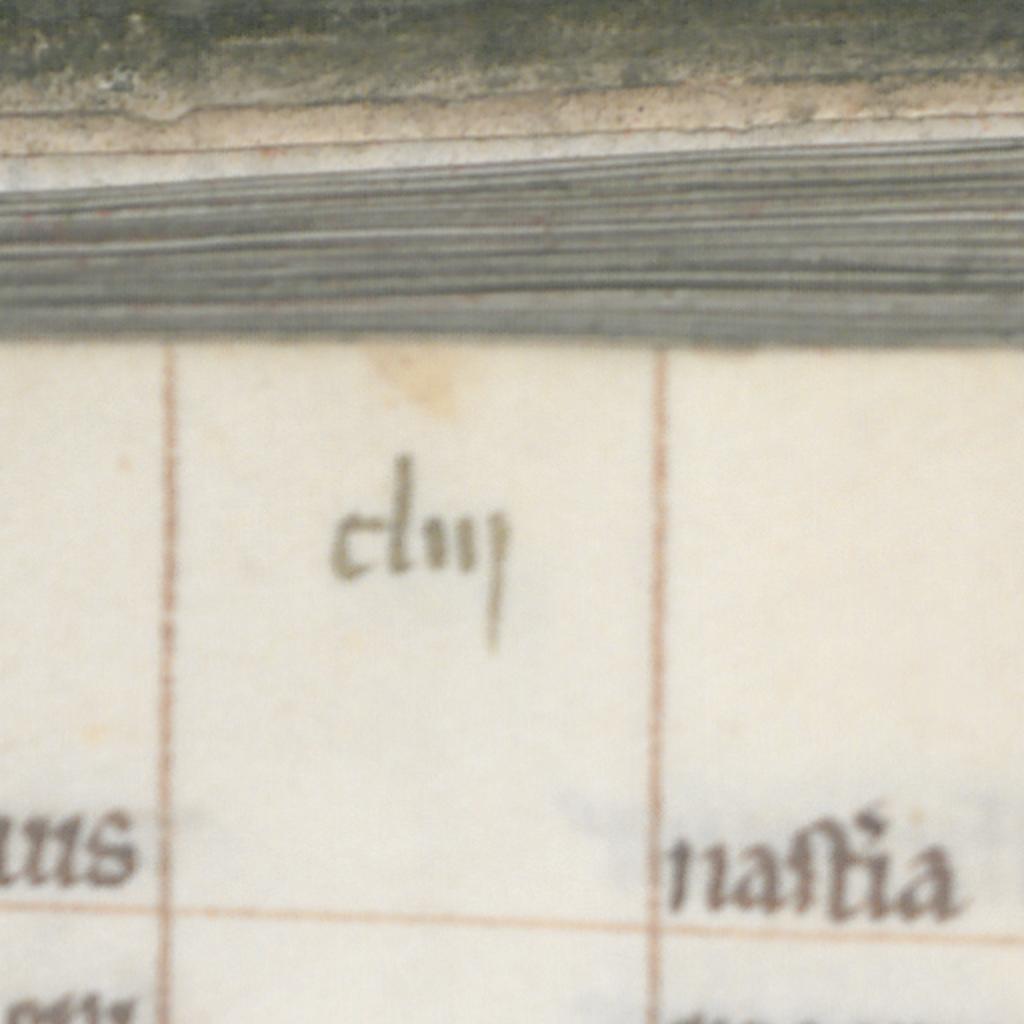 cliij
uus
nastia